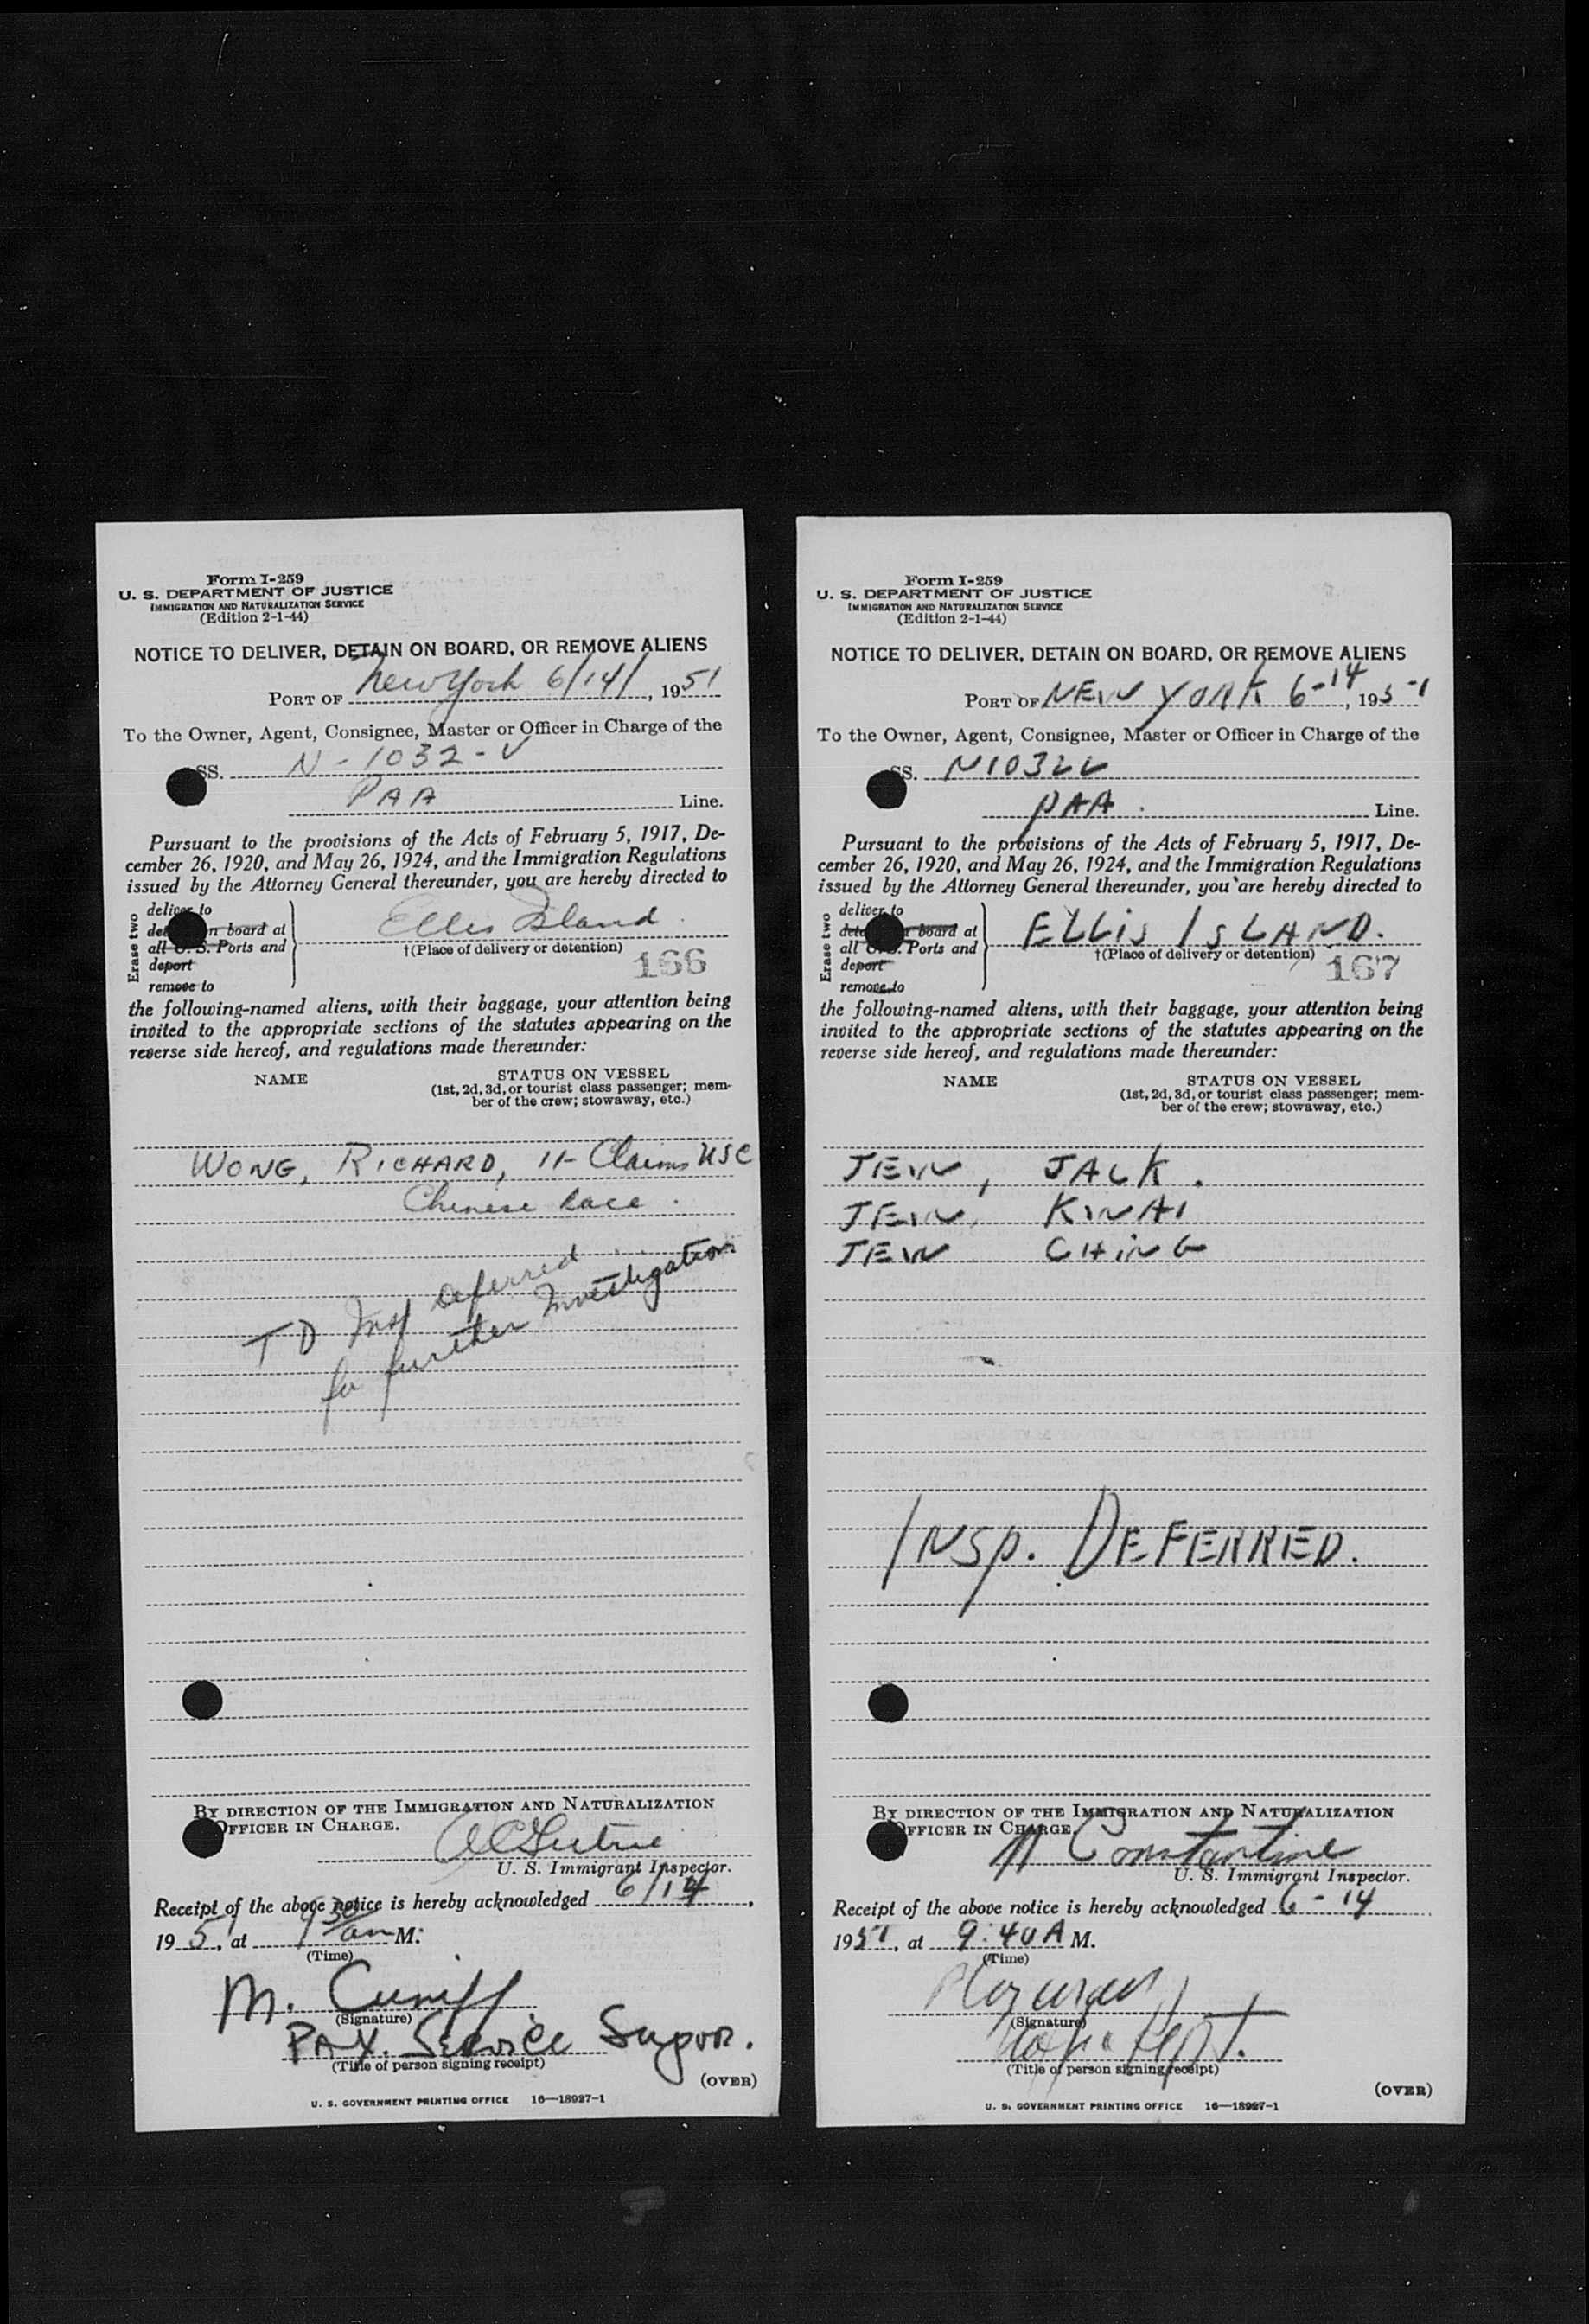 Form I-259
U. S. DEPARTMENT OF JUSTICE
IMMIGRATION AND NATURALIZATION SERVICE
(Edition 2-1-44)
NOTICE TO DELIVER, DETAIN ON BOARD, OR REMOVE ALIENS
PORT OF New York 6/14/, 1951
To the Owner, Agent, Consignee, Master or Officer in Charge of the
SS. N-1032-V
PAA Line.
Pursuant to the provisions of the Acts of February 5, 1917, De-
cember 26, 1920, and May 26, 1924, and the Immigration Regulations
issued by the Attorney General thereunder, you are hereby directed to
Erase two
deliver to
n board at
all U. S. Ports and
deport
remove to
Ellis Island
†(Place of delivery or detention)
166
the following-named aliens, with their baggage, your attention being
invited to the appropriate sections of the statutes appearing on the
reverse side hereof, and regulations made thereunder:
NAME STATUS ON VESSEL
(1st, 2d, 3d, or tourist class passenger; mem-
ber of the crew; stowaway, etc.)
WONG, RICHARD, 11- Claims USC
Chinese Race.
TD Insp deferred
for further investigation
BY DIRECTION OF THE IMMIGRATION AND NATURALIZATION
OFFICER IN CHARGE.
U. S. Immigrant Inspector.
Receipt of the above notice is hereby acknowledged 6/14,
195, at 9 30 am M.
(Time)
M. Cuniff
(Signature)
PAX. Service Supvr.
(Title of person signing receipt)
(OVER)
U. S. GOVERNMENT PRINTING OFFICE 16—18927-1
Form I-259
U. S. DEPARTMENT OF JUSTICE
IMMIGRATION AND NATURALIZATION SERVICE
(Edition 2-1-44)
NOTICE TO DELIVER, DETAIN ON BOARD, OR REMOVE ALIENS
PORT OF NEW YORK 6-14, 195-1
To the Owner, Agent, Consignee, Master or Officer in Charge of the
SS. N1032V
PAA. Line.
Pursuant to the provisions of the Acts of February 5, 1917, De-
cember 26, 1920, and May 26, 1924, and the Immigration Regulations
issued by the Attorney General thereunder, you are hereby directed to
Erase two
deliver to
board at
all U. S. Ports and
deport
remove to
ELLIS ISLAND.
†(Place of delivery or detention)
167
the following-named aliens, with their baggage, your attention being
invited to the appropriate sections of the statutes appearing on the
reverse side hereof, and regulations made thereunder:
NAME STATUS ON VESSEL
(1st, 2d, 3d, or tourist class passenger; mem-
ber of the crew; stowaway, etc.)
JEW, JACK.
JEW, KWAI
JEW CHING
INSP. DEFERRED.
BY DIRECTION OF THE IMMIGRATION AND NATURALIZATION
OFFICER IN CHARGE.
N Constantine
U. S. Immigrant Inspector.
Receipt of the above notice is hereby acknowledged 6-14
1951, at 9:40 A M.
(Time)
(Signature)
(Title of person signing receipt)
(OVER)
U. S. GOVERNMENT PRINTING OFFICE 16—18927-1